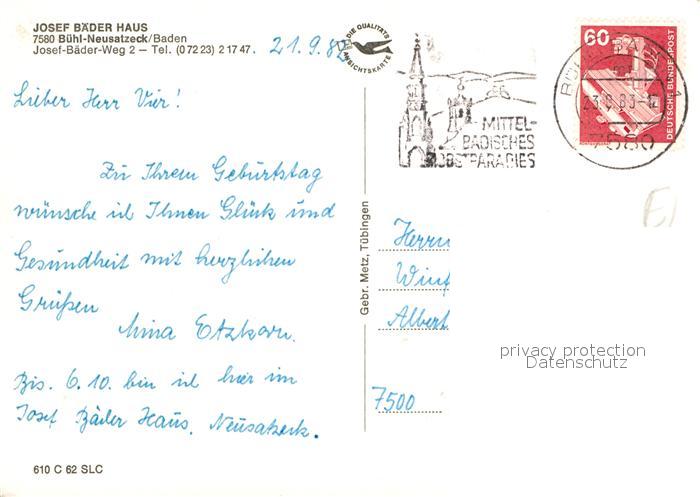 JOSEF BÄDER HAUS
7580 Bühl-Neusatzeck/Baden
Josef-Bäder-Weg 2 — Tel. (0 72 23) 2 17 47.
21.9.83
DIE QUALITÄTS
ANSICHTSKARTE
Lieber Herr Vier!
Zu Ihrem Geburtstag
wünsche ich Ihnen Glück und
Gesundheit mit herzlichen
Grüßen
Anna Etzkorn.
Bis. 6.10. bin ich hier im
Josef Bäder Haus, Neusatzeck.
610 C 62 SLC
Gebr. Metz, Tübingen
MITTEL-
BADISCHES
OBSTPARADIES
60
DEUTSCHE BUNDESPOST
23.9.83-12
7580
Herrn
Winf
Albert
7500
privacy protection
Datenschutz